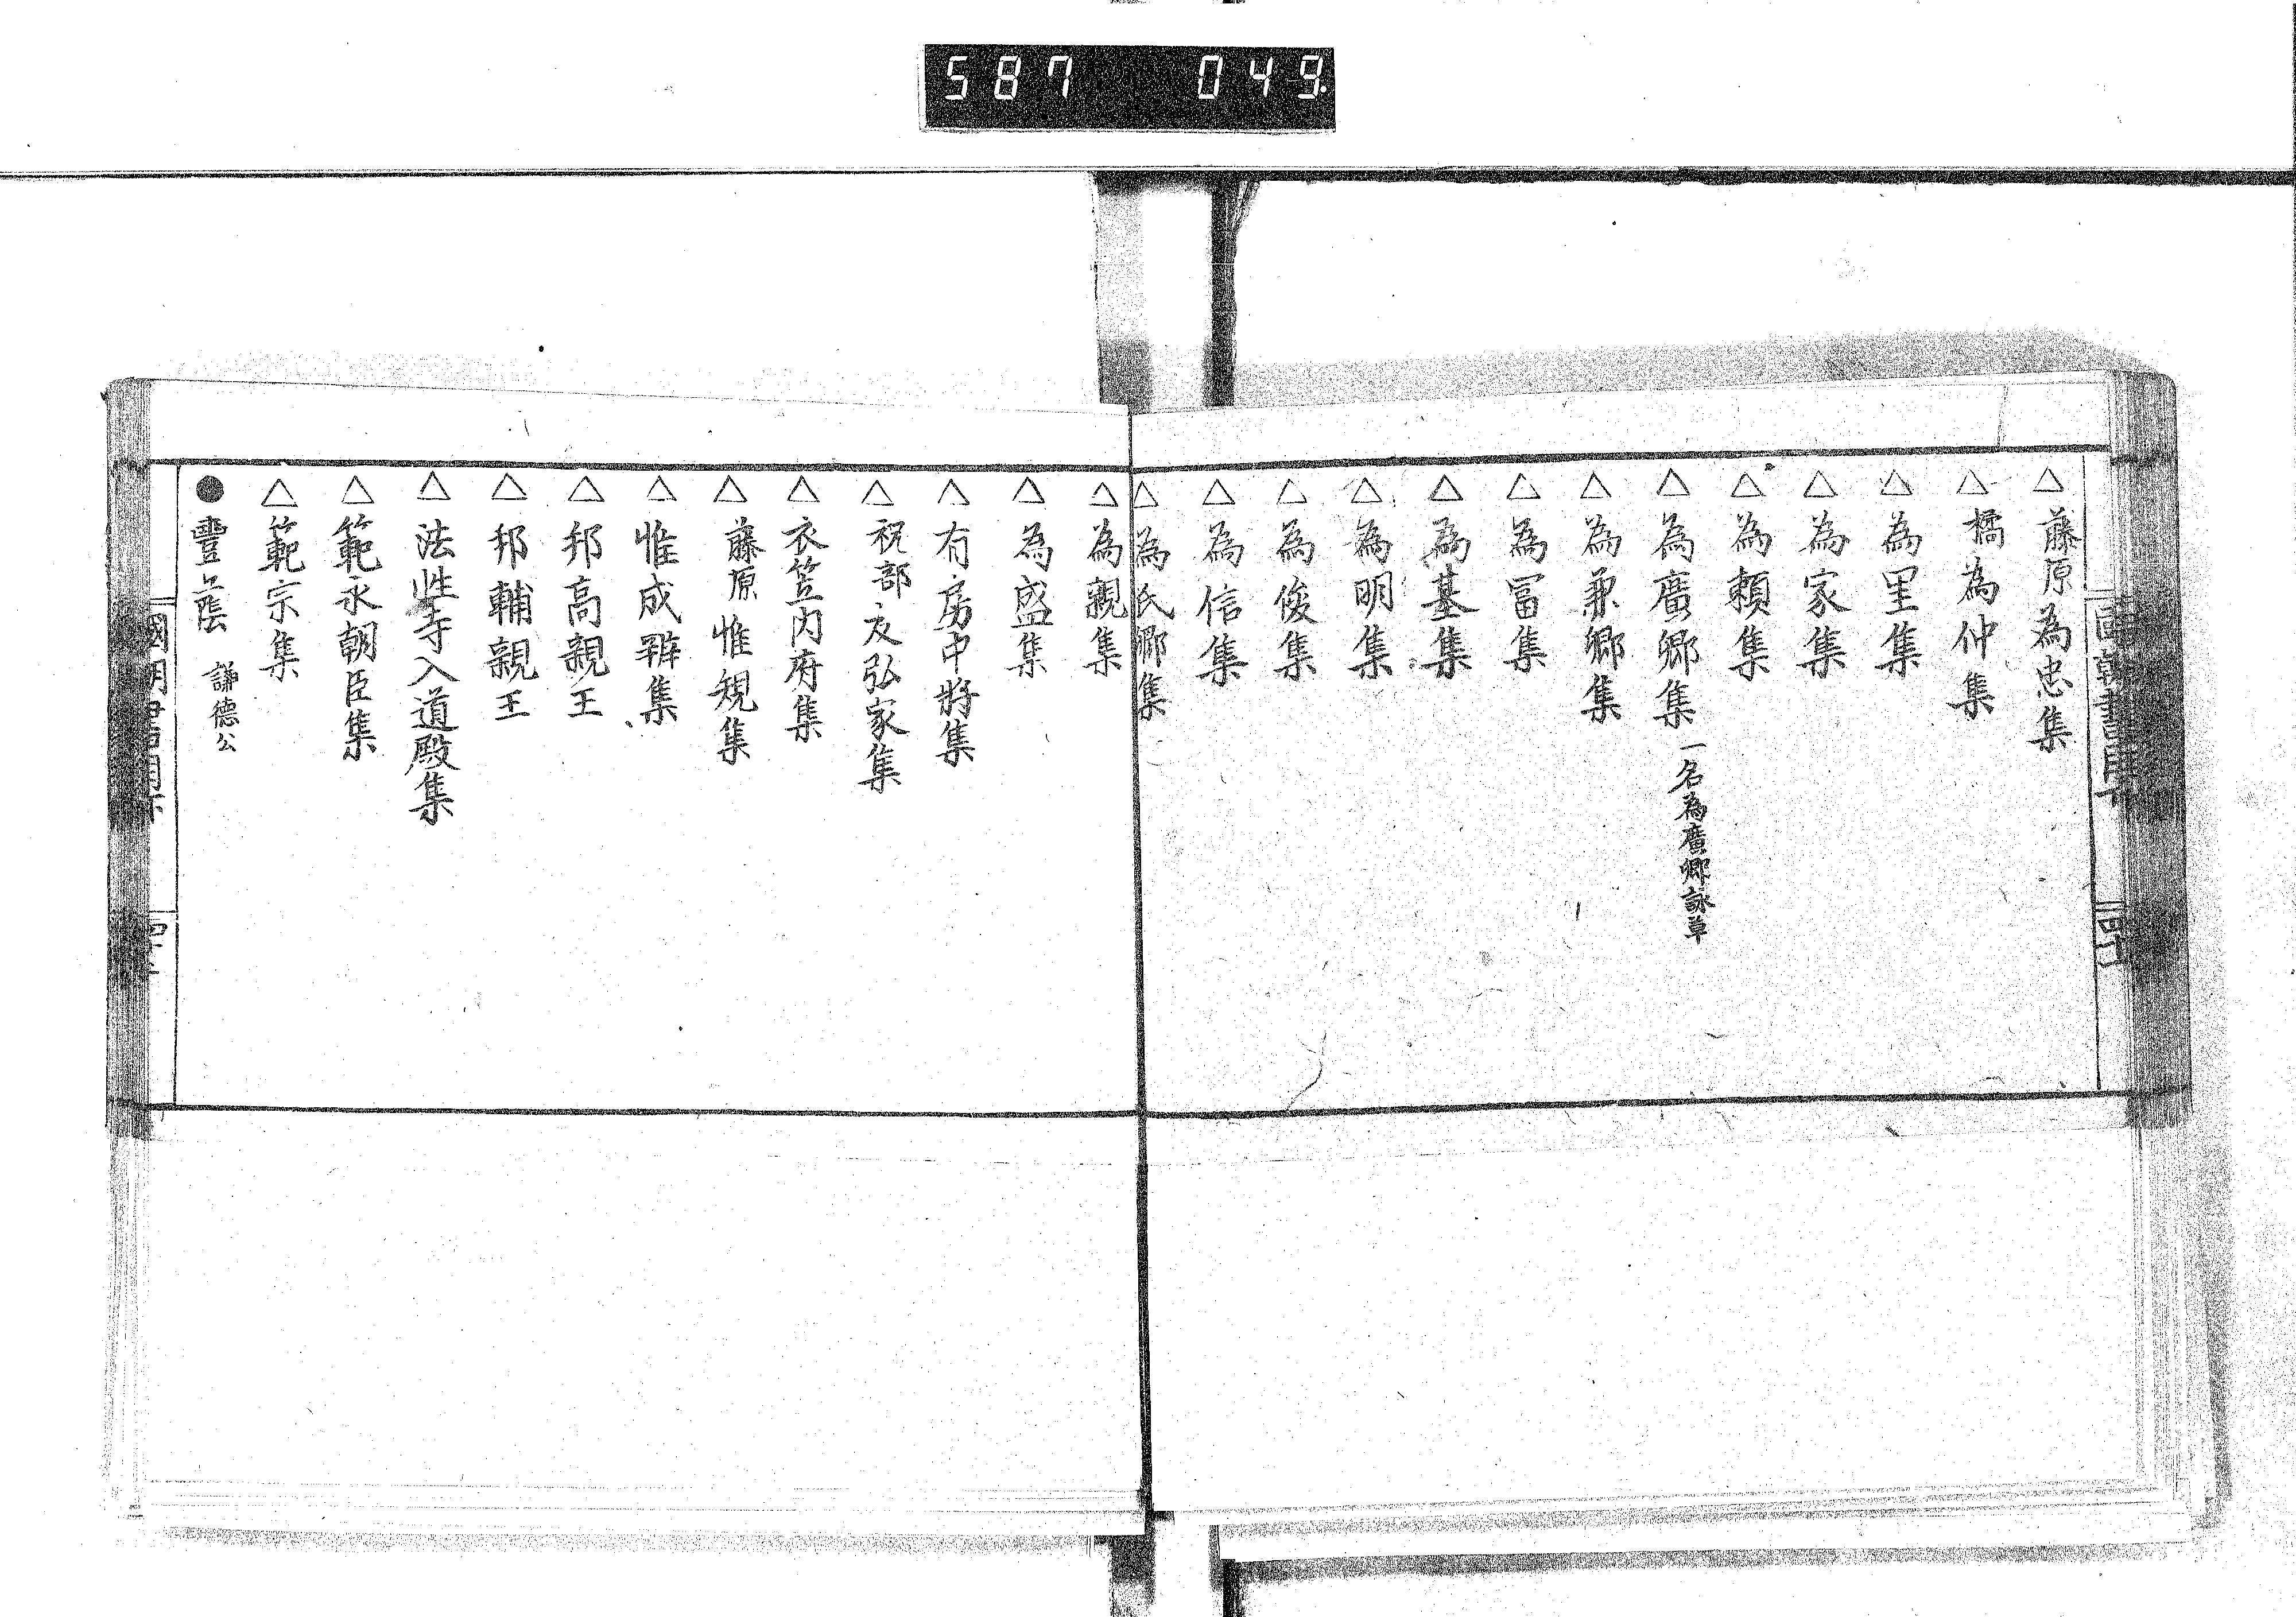 587 049
△藤原為忠集
△橘為仲集
△為里集
△為家集
△為頼集
△為廣卿集 一名為廣卿詠草
△為兼卿集
△為冨集
△為基集
△為明集
△為俊集
△為信集
△為氏卿集
△為親集
△為盛集
△有房中將集
△祝部友弘家集
△衣笠内府集
△藤原惟規集
△惟成辨集
△邦高親王
△邦輔親王
△法性寺入道殿集
△範永朝臣集
△範宗集
●豐蔭 謙德公